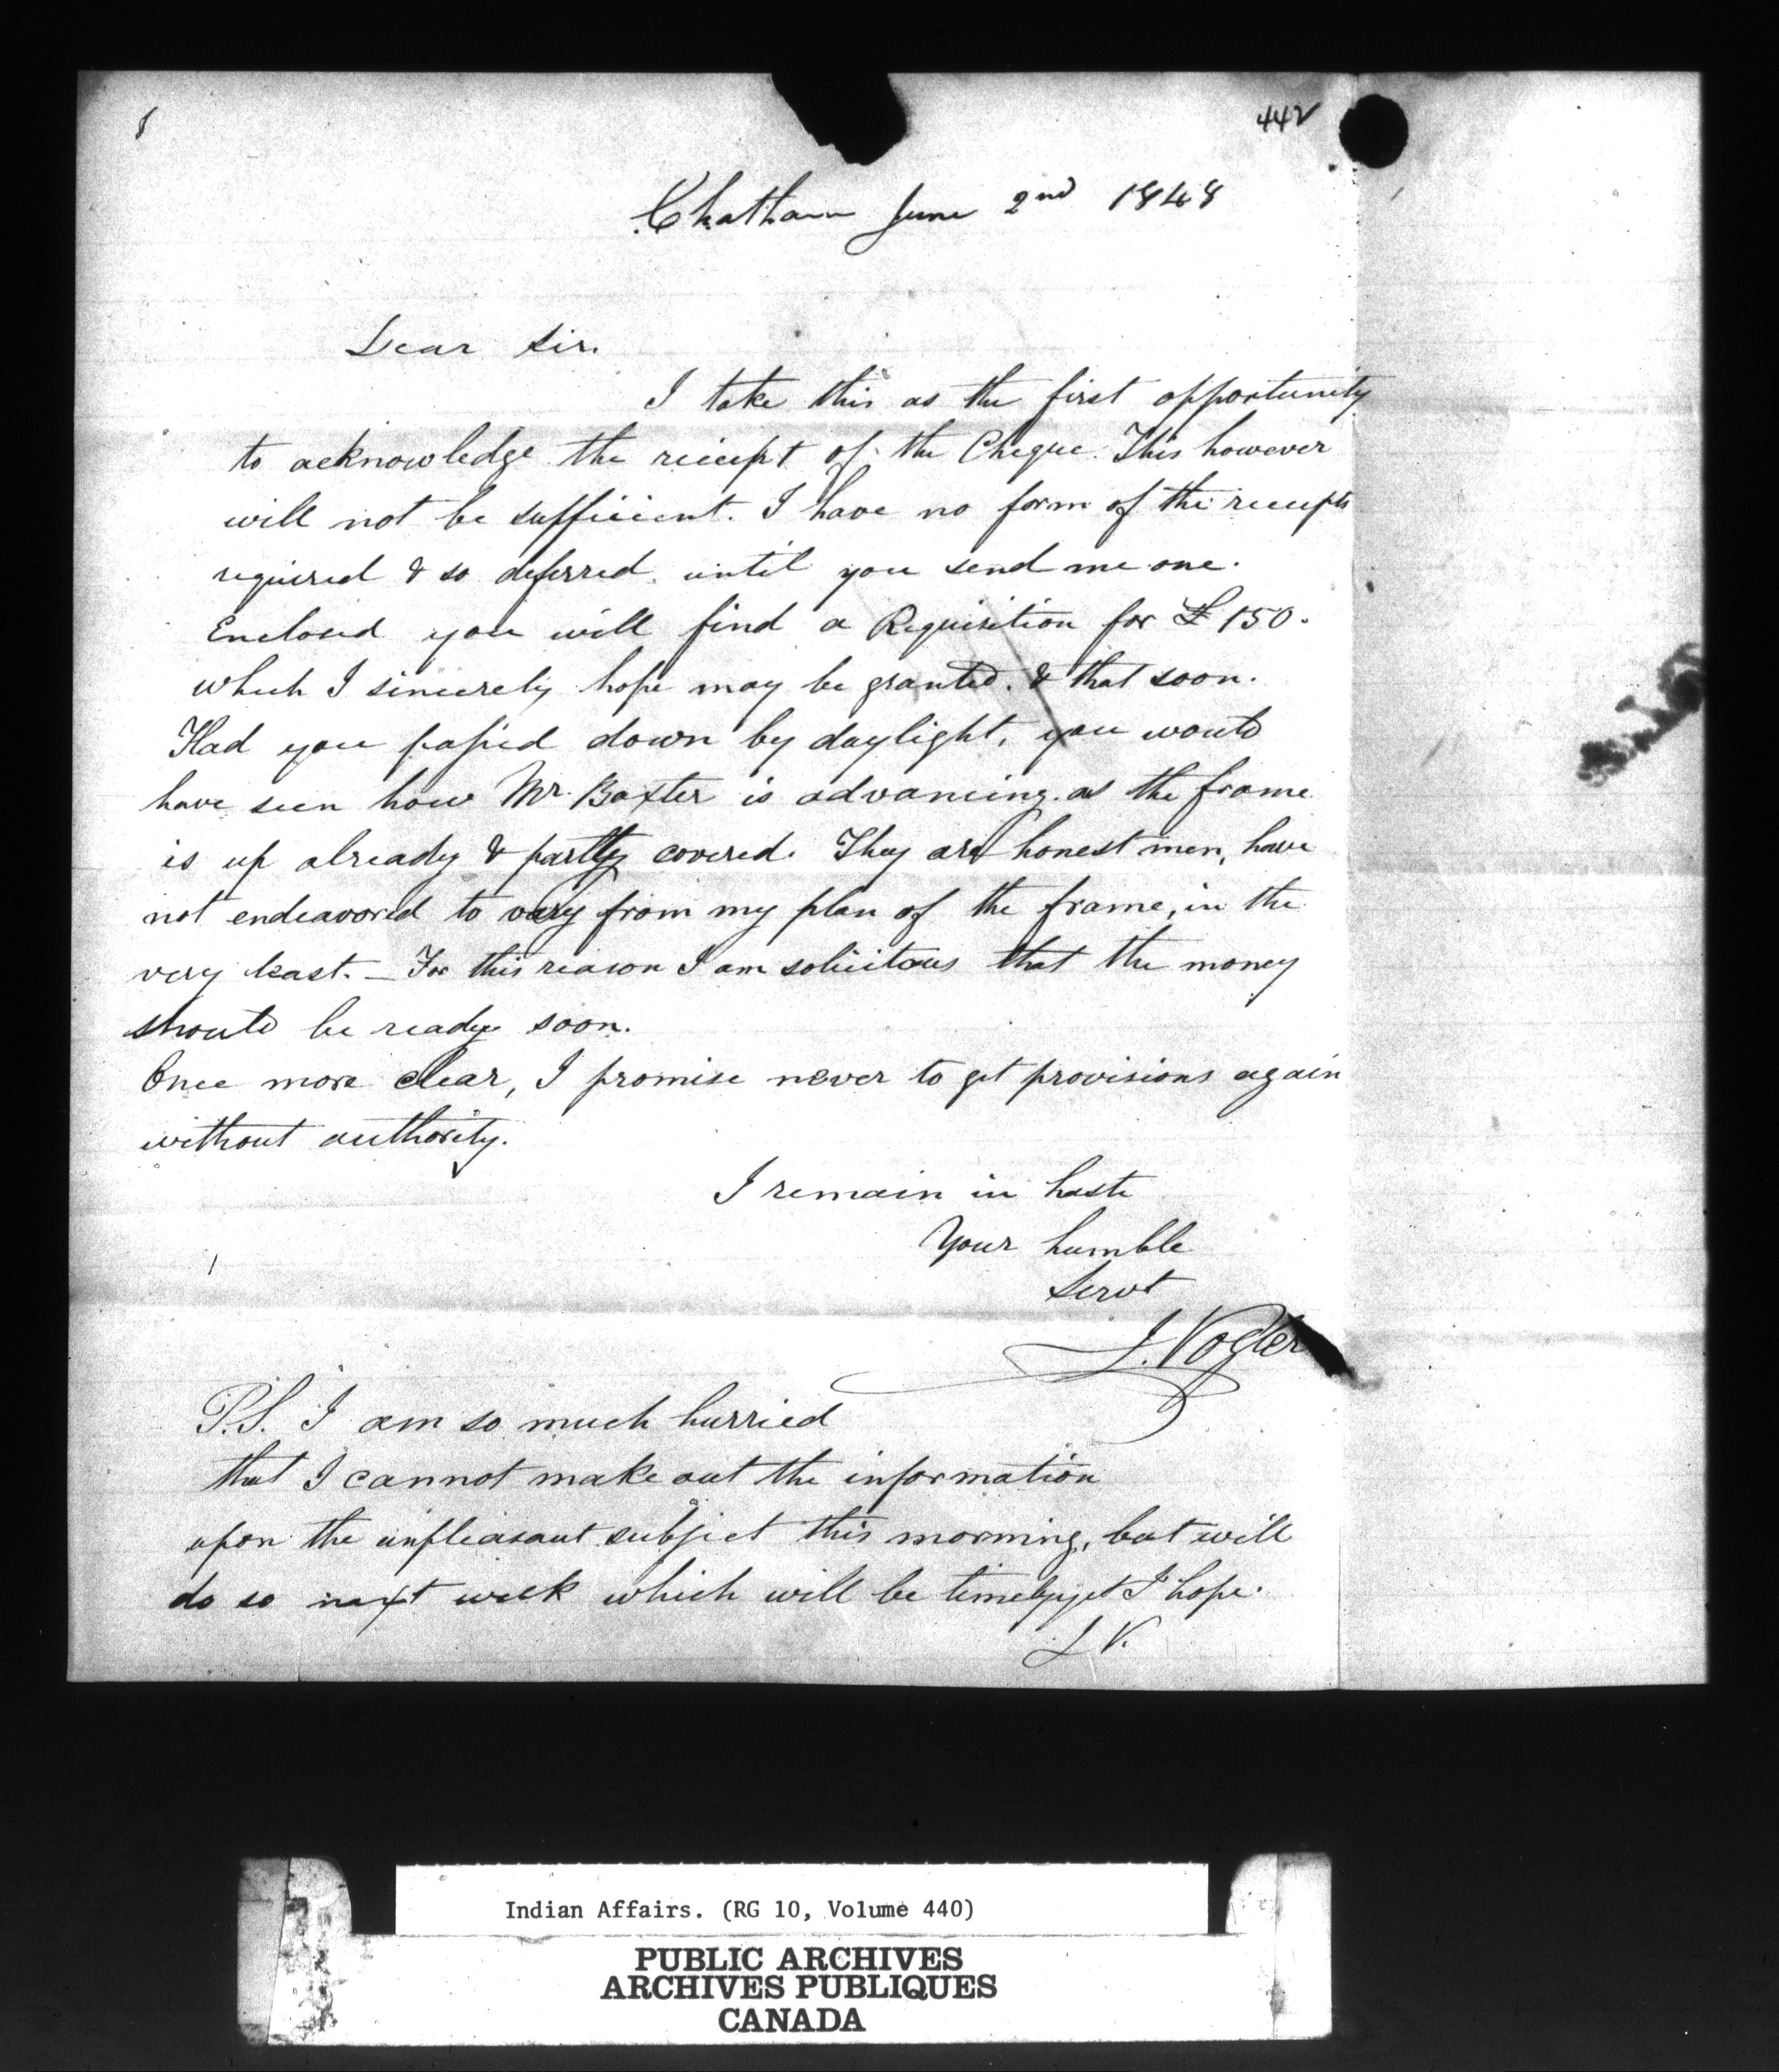 442
Chatham June 2nd 1848
Dear Sir.
I take this as the first opportunity
to acknowledge the reciept of the Cheque. This however
will not be sufficient. I have no form of the reciepts
required & so deferred until you send me one.
Enclosed you will find a Requisition for £150.
which I sincerely hope may be granted. & that soon.
Had you passed down by daylight, you would
have seen how Mr. Baxter is advancing. as the frame
is up already & partly covered. They are honest men, have
not endeavored to vary from my plan of the frame, in the
very least. — For this reason I am solicitous that the money
should be ready soon.
Once more clear, I promise never to get provisions again
without authority.
I remain in haste
Your humble
Servt
J. Vogler
P.S. I am so much hurried
that I cannot make out the information
upon the unpleasant subject this morning, but will
do so next week which will be timely yet I hope.
J V.
Indian Affairs. (RG 10, Volume 440)
PUBLIC ARCHIVES
ARCHIVES PUBLIQUES
CANADA